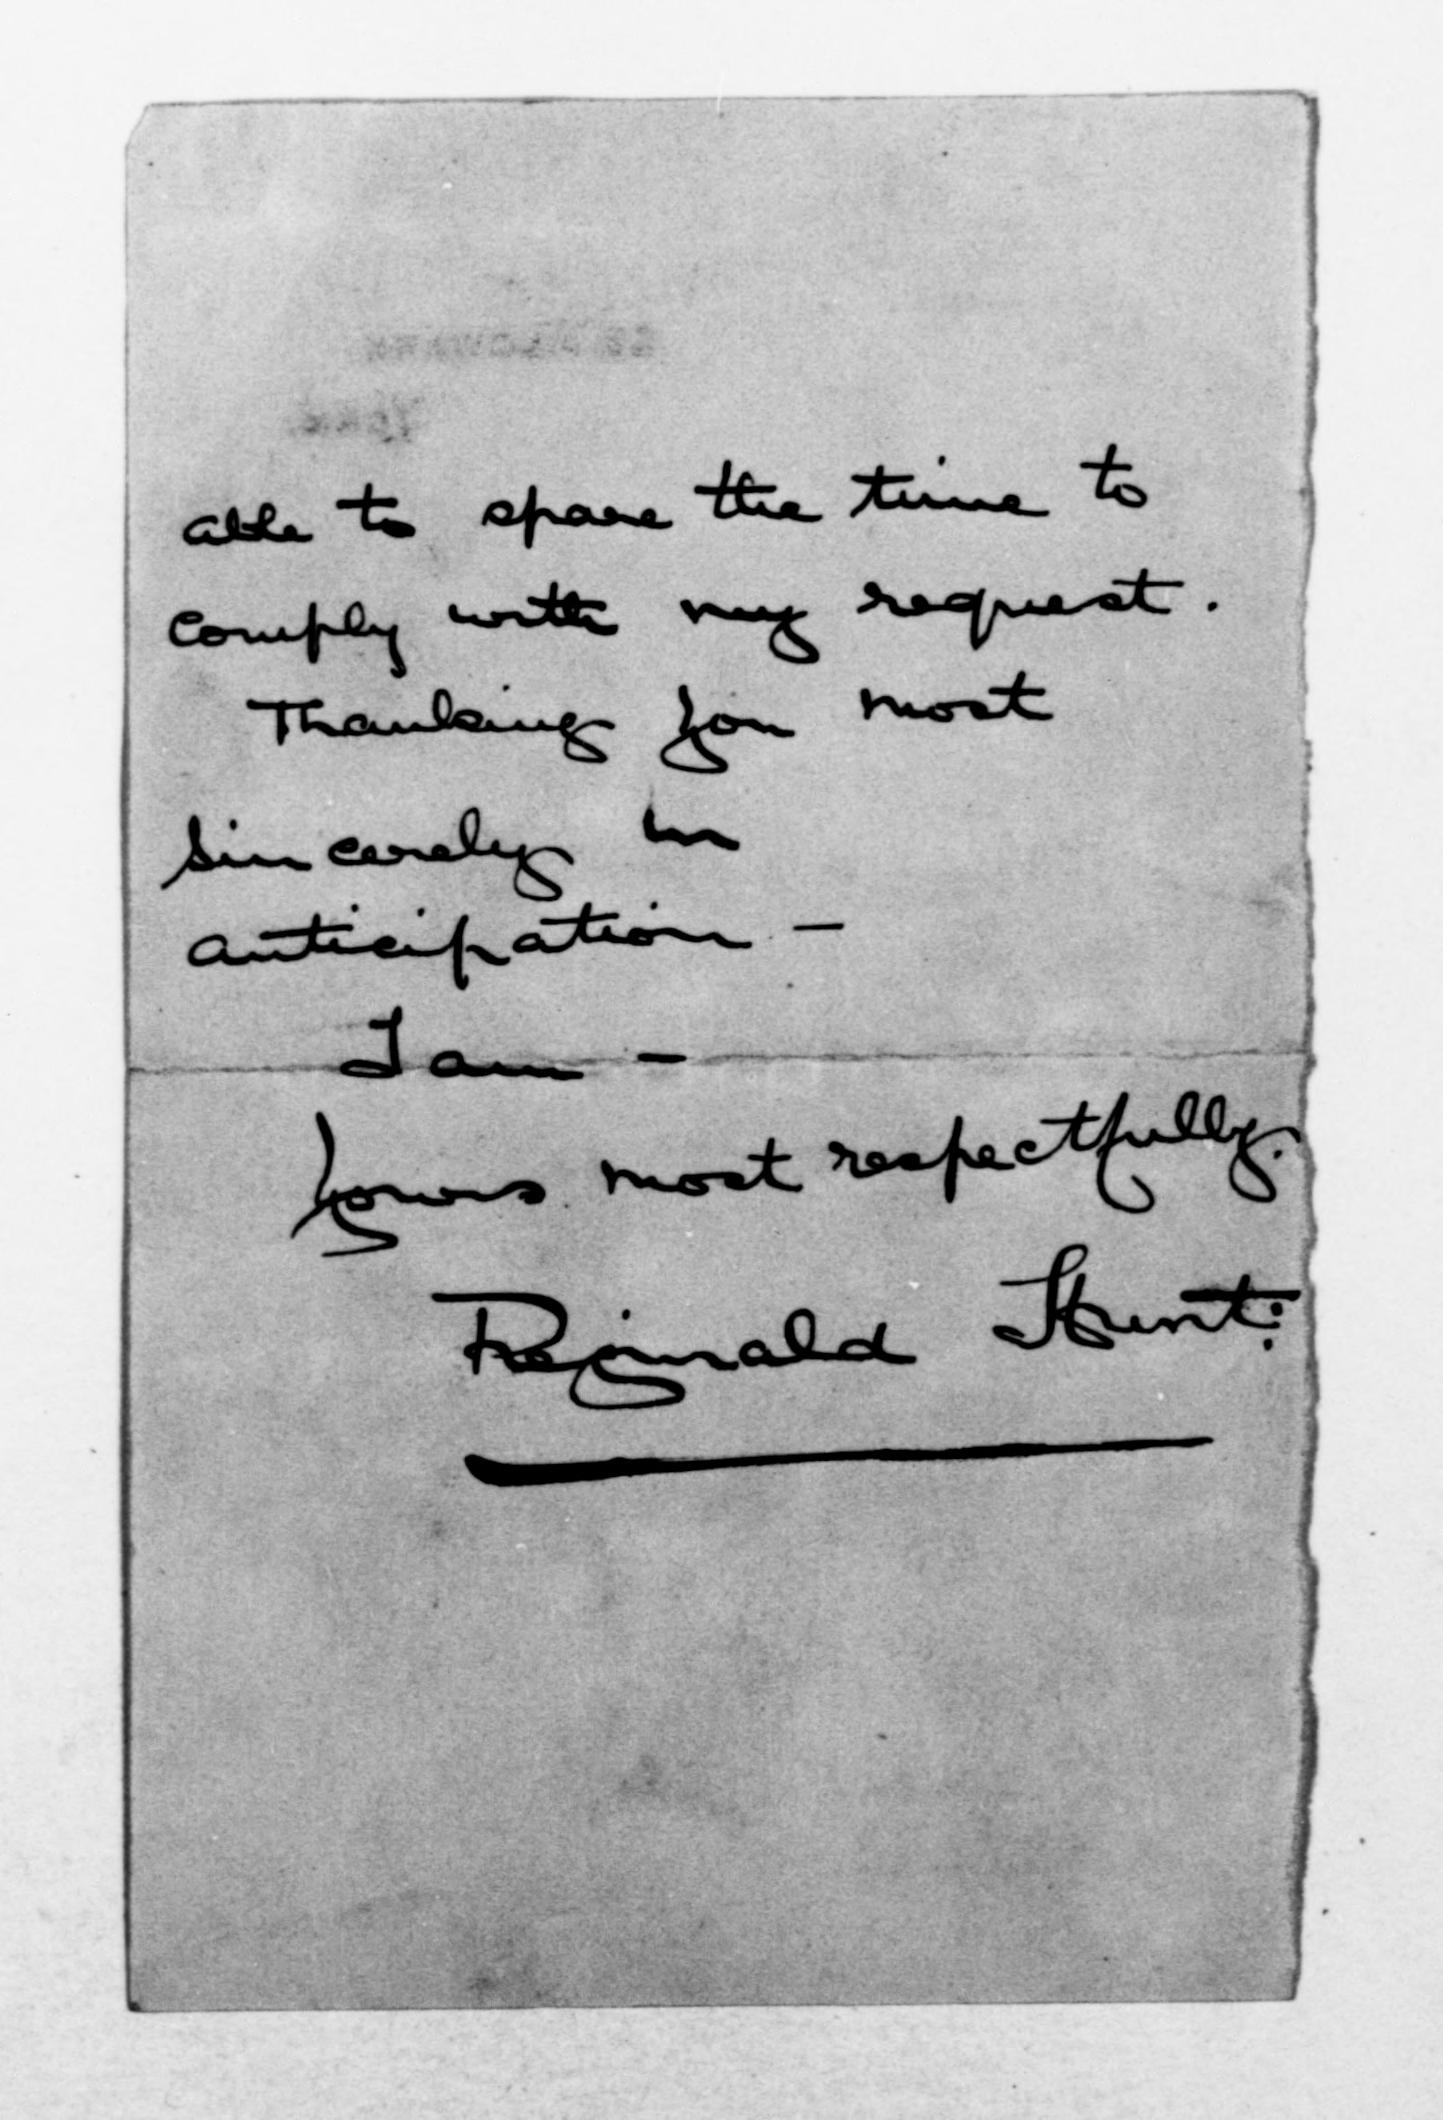 able to spare the time to
comply with my request.
Thanking you most
sincerely in
anticipation -
I am -
Yours most respectfully.
Reginald Hunt: